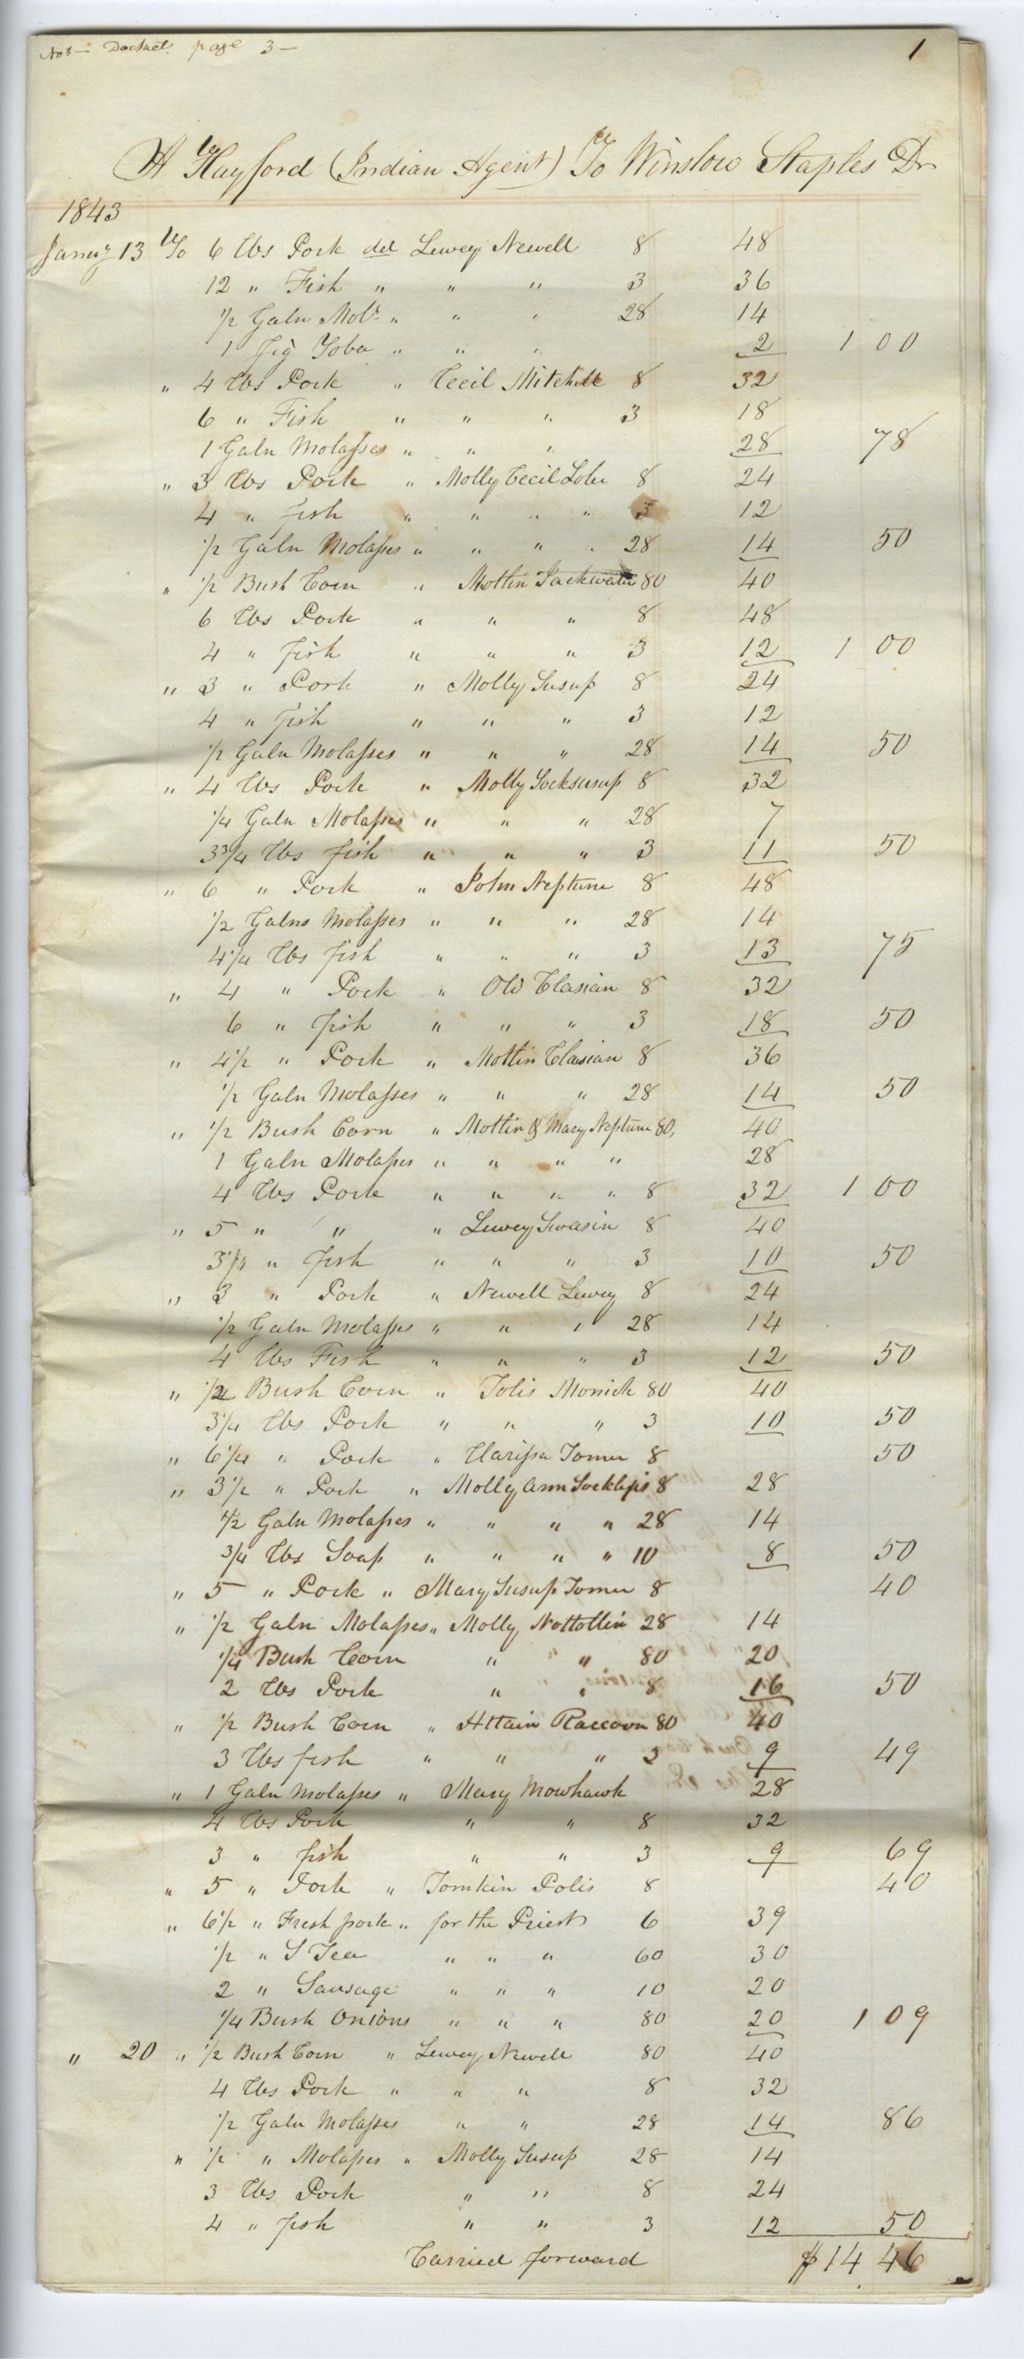 No 3 — Docket page 3 —
1
H Hayford (Indian Agent) To Winslow Staples Dr
1843
Jany 13 To 6 lbs Pork del Lewey Newell 8 48
12 " Fish " " " 3 36
1/2 Galn Mols " " " 28 14
1 fig Toba " " " 2 1 00
" 4 lbs Pork " Cecil Mitchell 8 32
6 " Fish " " " 3 18
1 Galn Molasses " " " 28 78
" 3 lbs Pork " Molly Cecil Loler 8 24
4 " fish " " " " 3 12
1/2 Galn Molasses " " " " 28 14 50
" 1/2 Bush Corn " Mollin 80 40
6 lbs Pork " " " 8 48
4 " fish " " " 3 12 1 00
" 3 " Pork " Molly Susup 8 24
4 " fish " " " 3 12
1/2 Galn Molasses " " " 28 14 50
" 4 lbs Pork " Molly Socksusup 8 32
1/4 Galn Molasses " " " 28 7
3 3/4 lbs fish " " " 3 11 50
" 6 " Pork " John Neptune 8 48
1/2 Galns Molasses " " " 28 14
4 1/4 lbs fish " " " 3 13 75
" 4 " Pork " Old Clasian 8 32
6 " fish " " " 3 18 50
" 4 1/2 " Pork " Mollin Clasian 8 36
1/2 Galn Molasses " " " 28 14 50
" 1/2 Bush Corn " Mollin & Mary Neptune 80, 40
1 Galn Molasses " " " " 28
4 lbs Pork " " " " 8 32 1 00
" 5 " " " Lewey Swasin 8 40
3 1/4 " fish " " " 3 10 50
" 3 " Pork " Newell Lewey 8 24
1/2 Galn Molasses " " " 28 14
4 lbs Fish " " " 3 12 50
" 1/2 Bush Corn " Tolis Monick 80 40
3 1/4 lbs Pork " " " 3 10 50
" 6 1/4 " Pork " Clarissa Tomer 8 50
" 3 1/2 " Pork " Molly Ann Socklexis 8 28
1/2 Galn Molasses " " " " 28 14
3/4 lbs Soap " " " " 10 8 50
" 5 " Pork " Mary Susup Tomer 8 40
" 1/2 Galn Molasses " Molly Nottollin 28 14
1/4 Bush Corn " " 80 20
2 lbs Pork " " 8 16 50
" 1/2 Bush Corn " Attain Raccoon 80 40
3 lbs fish " " " 3 9 49
" 1 Galn Molasses " Mary Mowhawk 28
4 lbs Pork " " 8 32
3 " fish " " 3 9 69
" 5 " Pork " Tomkin Polis 8 40
" 6 1/2 " Fresh pork " for the Priest 6 39
1/2 " S Tea " " " 60 30
2 " Sausage " " " 10 20
1/4 Bush Onions " " " 80 20 1 09
" 20 " 1/2 Bush Corn " Lewey Newell 80 40
4 lbs Pork " " " 8 32
1/2 Galn Molasses " " 28 14 86
" 1/2 " Molasses " Molly Susup 28 14
3 lbs Pork " " 8 24
4 " fish " " 3 12 50
Carried forward $14 46